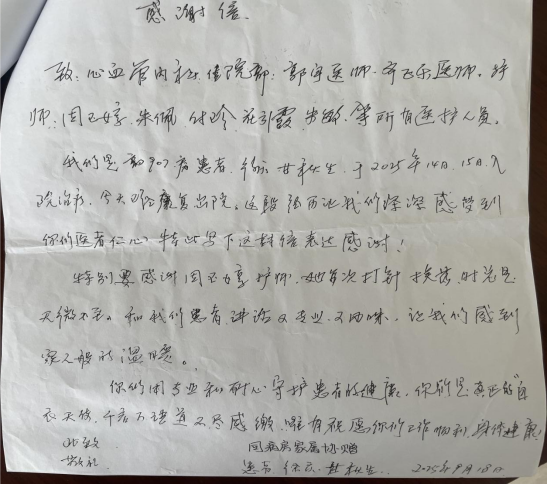 感谢信
致:心血管内科住院部:郭宇医师、齐飞乐医师。护
师:周玉婷、朱佩、付玲、花引霞、等所有医护人员。
我们是 907病患者、甘秋生,于2025年 14日、15日入
院治疗,今天 康复出院。这段经历让我们深深感受到
你们医者仁心,特此写下这封信表达感谢!
特别要感谢周玉婷护师,她每次打针换药时总是
无微不至。和我们患者讲话又专业、又风味,让我们感到
家人般的温暖。
你们用专业和耐心守护患者的健康,你们是真正的"白
衣天使",千言万语道不尽感激,唯有祝愿你们工作顺利,身体健康!
此致
敬礼
同病房家属协赠
患者 甘秋生
2025年9月18日